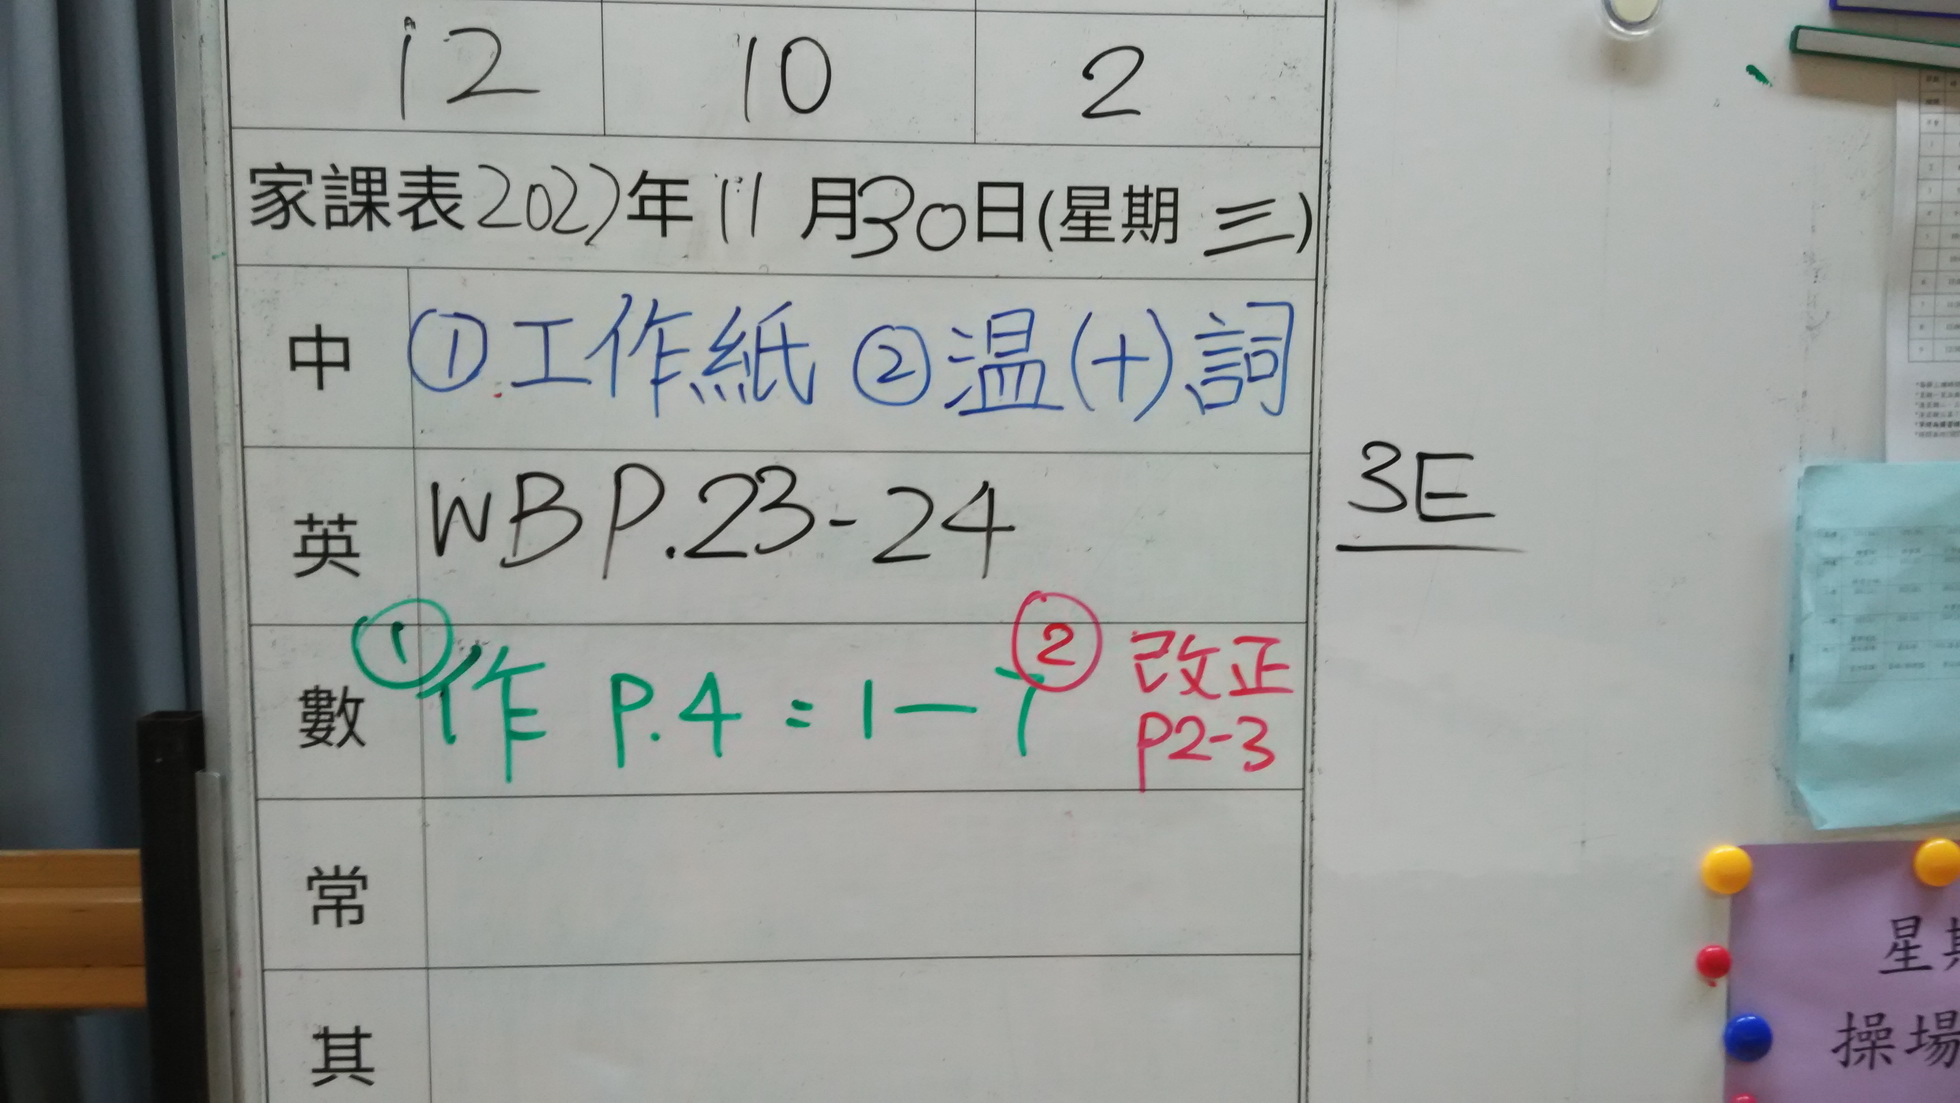 12 10 2
家課表2022年11月30日(星期三)
中 ①工作紙 ②温(十)詞
英 WB P.23-24
3E
數 ①作 P.4 = 1—7 ②改正
P2-3
常
其
星期
操場